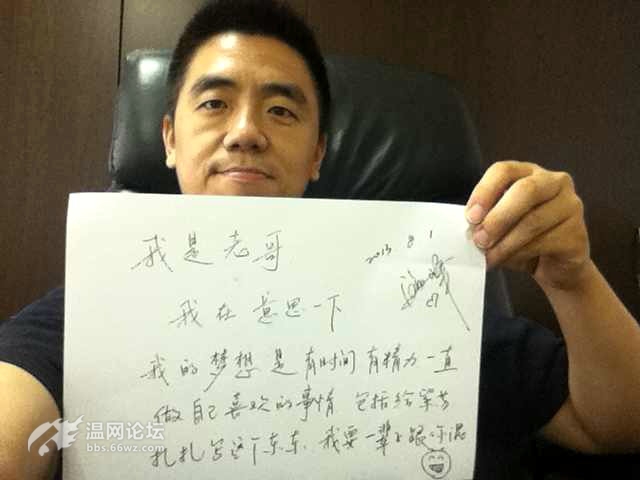 我是老哥
2013 8 1
我在意思一下
我的梦想是有时间有精力一直
做自己喜欢的事情 包括给
扎扎写这个东东. 我要一辈子跟你混
温网论坛
bbs.66wz.com